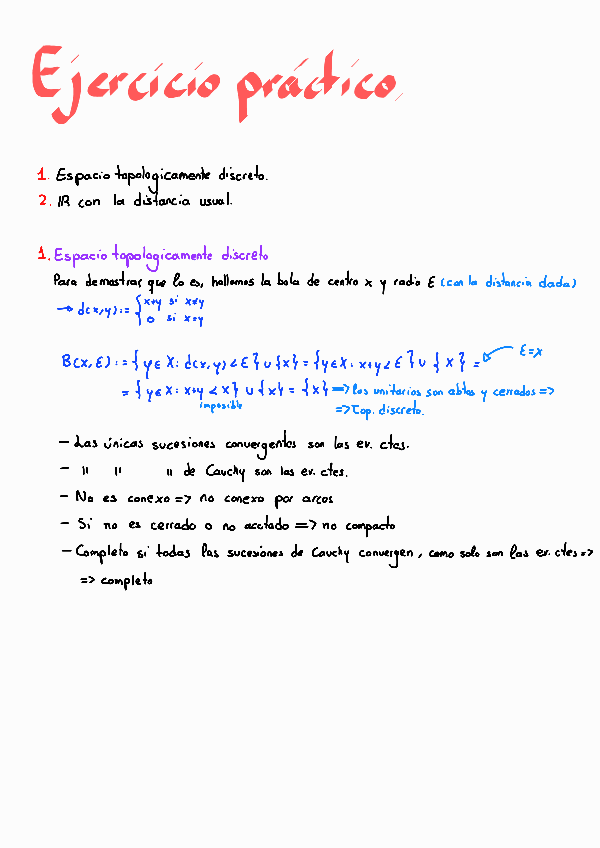 Ejercicio práctico
1. Espacio topologicamente discreto.
2. IR con la distancia usual.
1. Espacio topologicamente discreto
Para demostrar que lo es, hallemos la bola de centro x y radio ε (con la distancia dada)
→ d(x,y):= { x+y si x≠y
0 si x=y
ε=x
B(x,ε):= {y∈X: d(x,y)<ε} ∪ {x} = {y∈X: x+y<ε} ∪ {x} =
= {y∈X: x+y<x} ∪ {x} = {x} => los unitarios son abtos y cerrados =>
imposible
=> Top. discreto.
- Las únicas sucesiones convergentes son las ev. ctes.
- " " " de Cauchy son las ev. ctes.
- No es conexo => no conexo por arcos
- Si no es cerrado o no acotado => no compacto
- Completo si todas las sucesiones de Cauchy convergen, como solo son las ev. ctes =>
=> completo